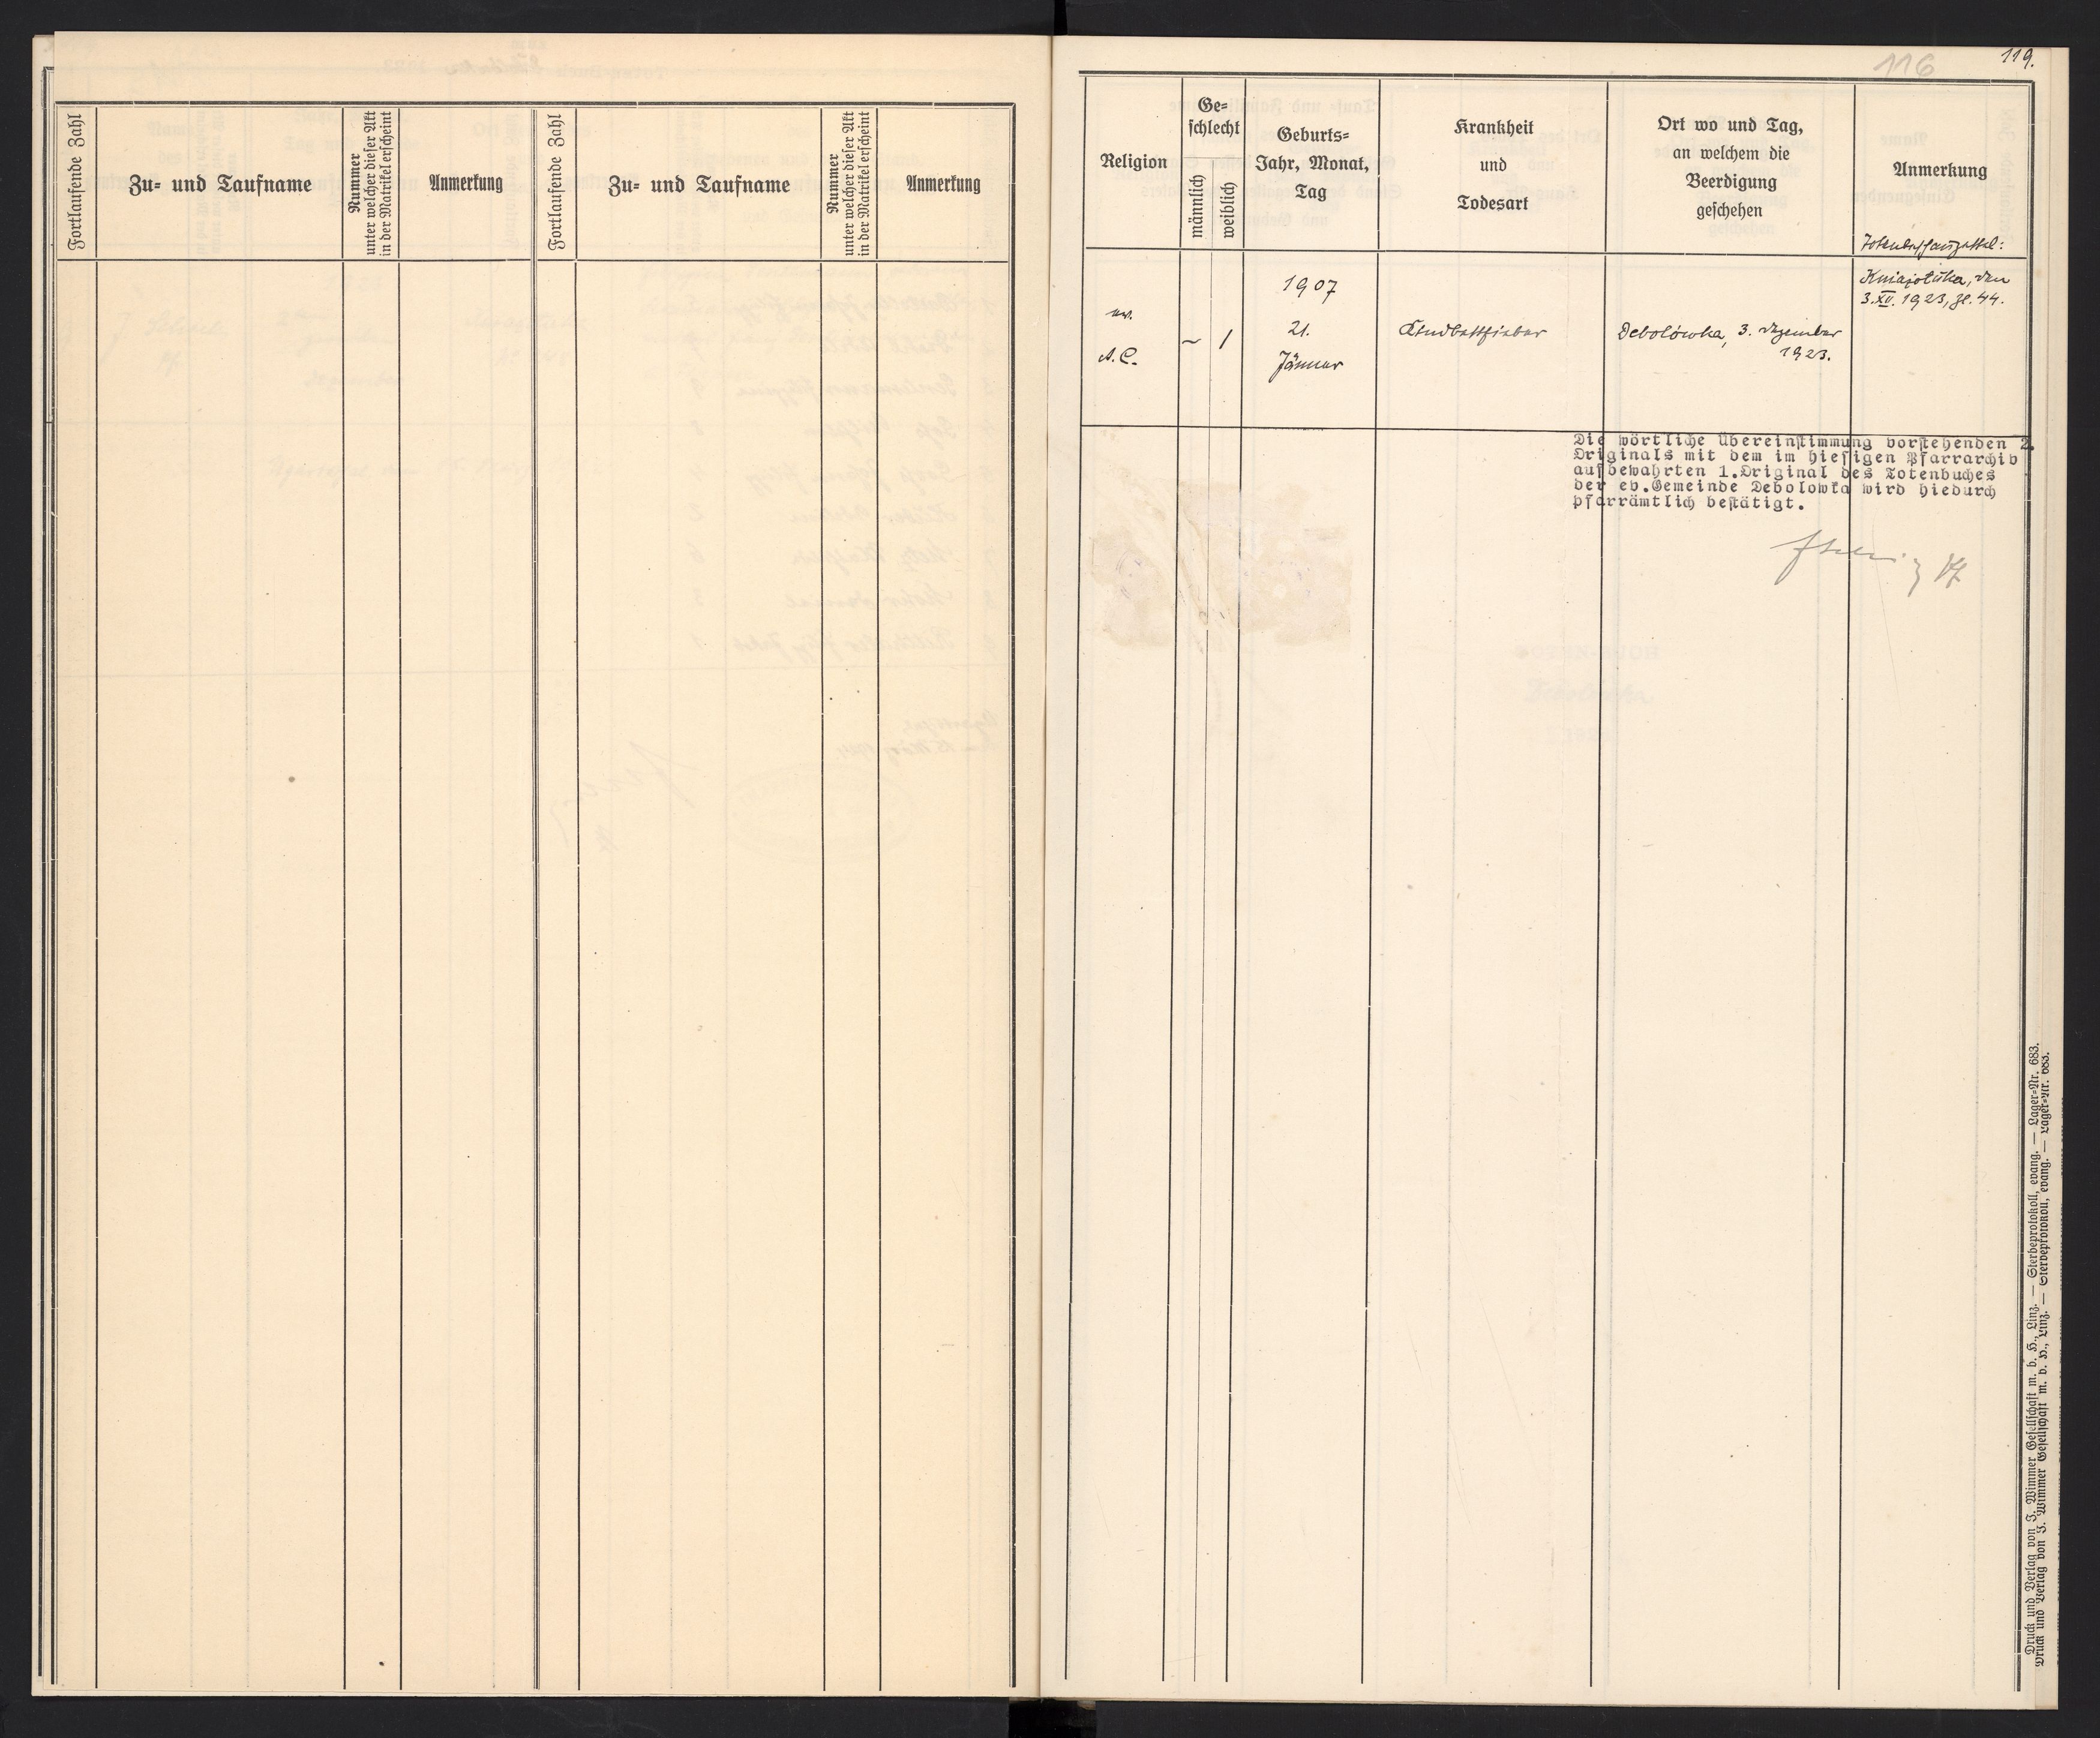 Fortlaufende Zahl
Zu= und Taufname
Nummer
unter welcher dieser Akt
in der Matrikel erscheint
Anmerkung
Fortlaufende Zahl
Zu= und Taufname
Nummer
unter welcher dieser Akt
in der Matrikel erscheint
Anmerkung
116
119.
Religion
Ge=
schlecht
männlich
weiblich
Geburts=
Jahr, Monat,
Tag
Krankheit
und
Todesart
Ort wo und Tag,
an welchem die
Beerdigung
geschehen
Anmerkung
Totenbeschauzettel:
ev.
A. C.
~ 1
1907
21.
Jänner
Kindbettfieber
Debolówka, 3. Dezember
1923.
Kniażołuka, den
3. XII. 1923, Zl. 44.
Die wörtliche Übereinstimmung vorstehenden 2.
Originals mit dem im hiesigen Pfarrarchiv
aufbewahrten 1.Original des Totenbuches
der ev.Gemeinde Debolowka wird hiedurch
pfarrämtlich bestätigt.
Druck und Verlag von J. Wimmer Gesellschaft m. b. H., Linz. — Sterbeprotokoll, evang. — Lager=Nr. 683.
Druck und Verlag von J. Wimmer Gesellschaft m. b. H., Linz. — Sterbeprotokoll, evang. — Lager=Nr. 683.